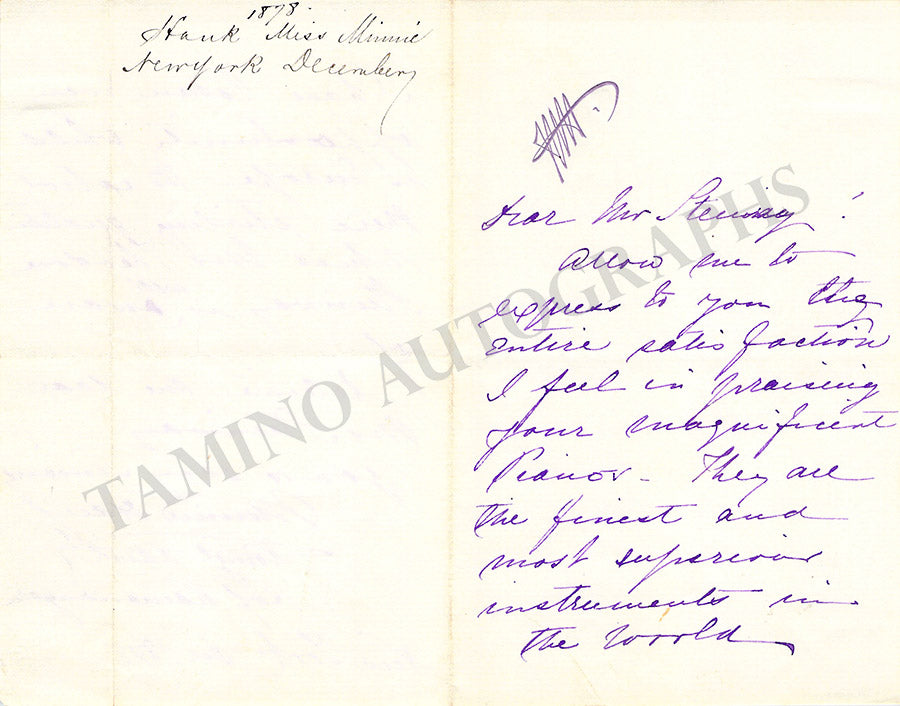 1878.
Hauk Miss Minnie
New York December
Dear Mr Steinway!
Allow me to
express to you the
entire satisfaction
I feel in praising
your magnificent
Pianos - They are
the finest and
most superior
instruments in
the World
TAMINO AUTOGRAPHS